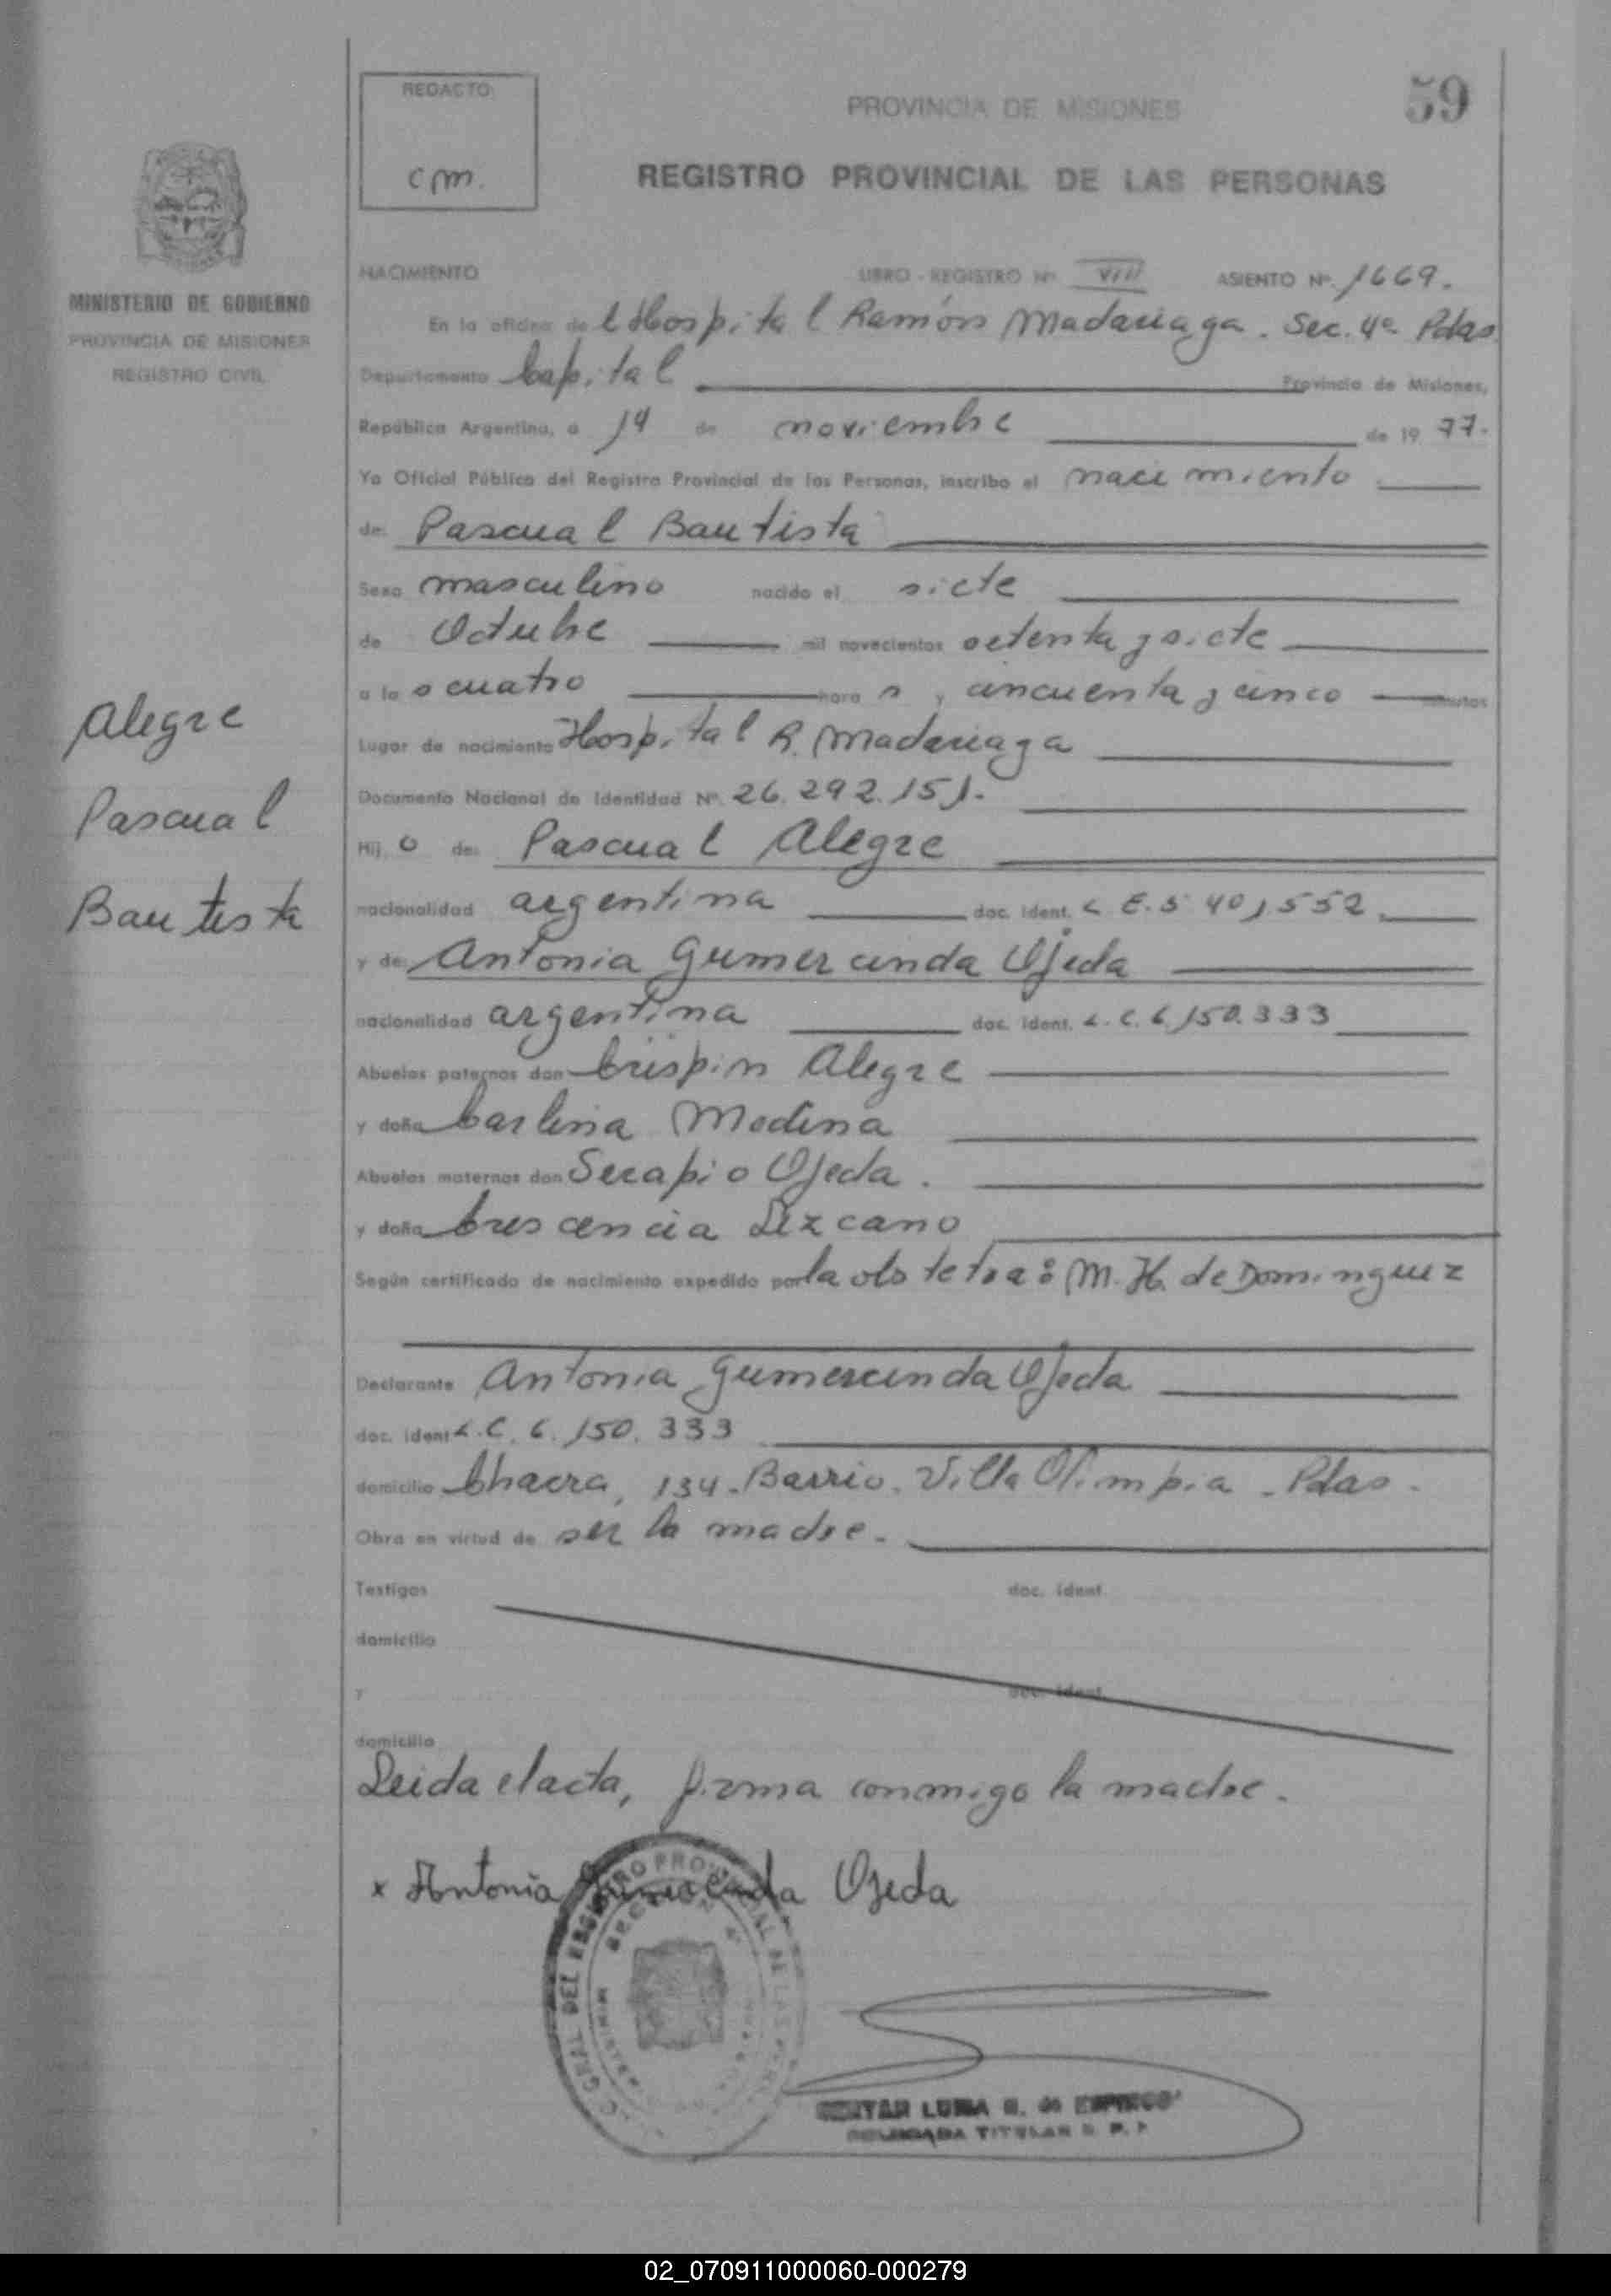 REDACTO
PROVINCIA DE MISIONES
59
cm.
REGISTRO PROVINCIAL DE LAS PERSONAS
MINISTERIO DE GOBIERNO
PROVINCIA DE MISIONES
REGISTRO CIVIL
NACIMIENTO LIBRO - REGISTRO Nº VIII ASIENTO Nº. 1669.
En la oficina del Hospital Ramón Madariaga. Sec. 4ª Pdas
Departamento Capital Provincia de Misiones,
República Argentina, a 14 de noviembre de 19 77.
Yo Oficial Público del Registro Provincial de las Personas, inscribo el nacimiento
de: Pascual Bautista
Sexo masculino nacido el siete
de Octubre mil novecientos setenta y siete
a las cuatro hora s y cincuenta y cinco minutos
Lugar de nacimiento Hospital R. Madariaga
Documento Nacional de Identidad Nº. 26.292.151.
Hij o de: Pascual Alegre
nacionalidad argentina doc. ident. L.E. 5.401,552.
y de: Antonia Gumercinda Ojeda
nacionalidad argentina doc. ident. L.C. 6.150.333
Abuelos paternos don Crispin Alegre
y doña Carlina Medina
Abuelos maternos don Serapio Ojeda.
y doña Crescencia Lezcano
Según certificado de nacimiento expedido por la obstetra: M. H. de Dominguez
Declarante Antonia Gumercinda Ojeda
doc. ident L.C. 6.150.333
domicilio Chacra, 134. Barrio. Villa Olimpia. Pdas.
Obra en virtud de ser la madre.
Testigos doc. ident.
domicilio
y doc. ident.
domicilio
Leida el acta, firma conmigo la madre.
x Antonia Gumercinda Ojeda
Alegre
Pascual
Bautista
GRAL DEL REGISTRO PROVINCIAL DE LAS
SECCION 4ª
LUISA
DELEGADA TITULAR R. P. P.
02_070911000060-000279